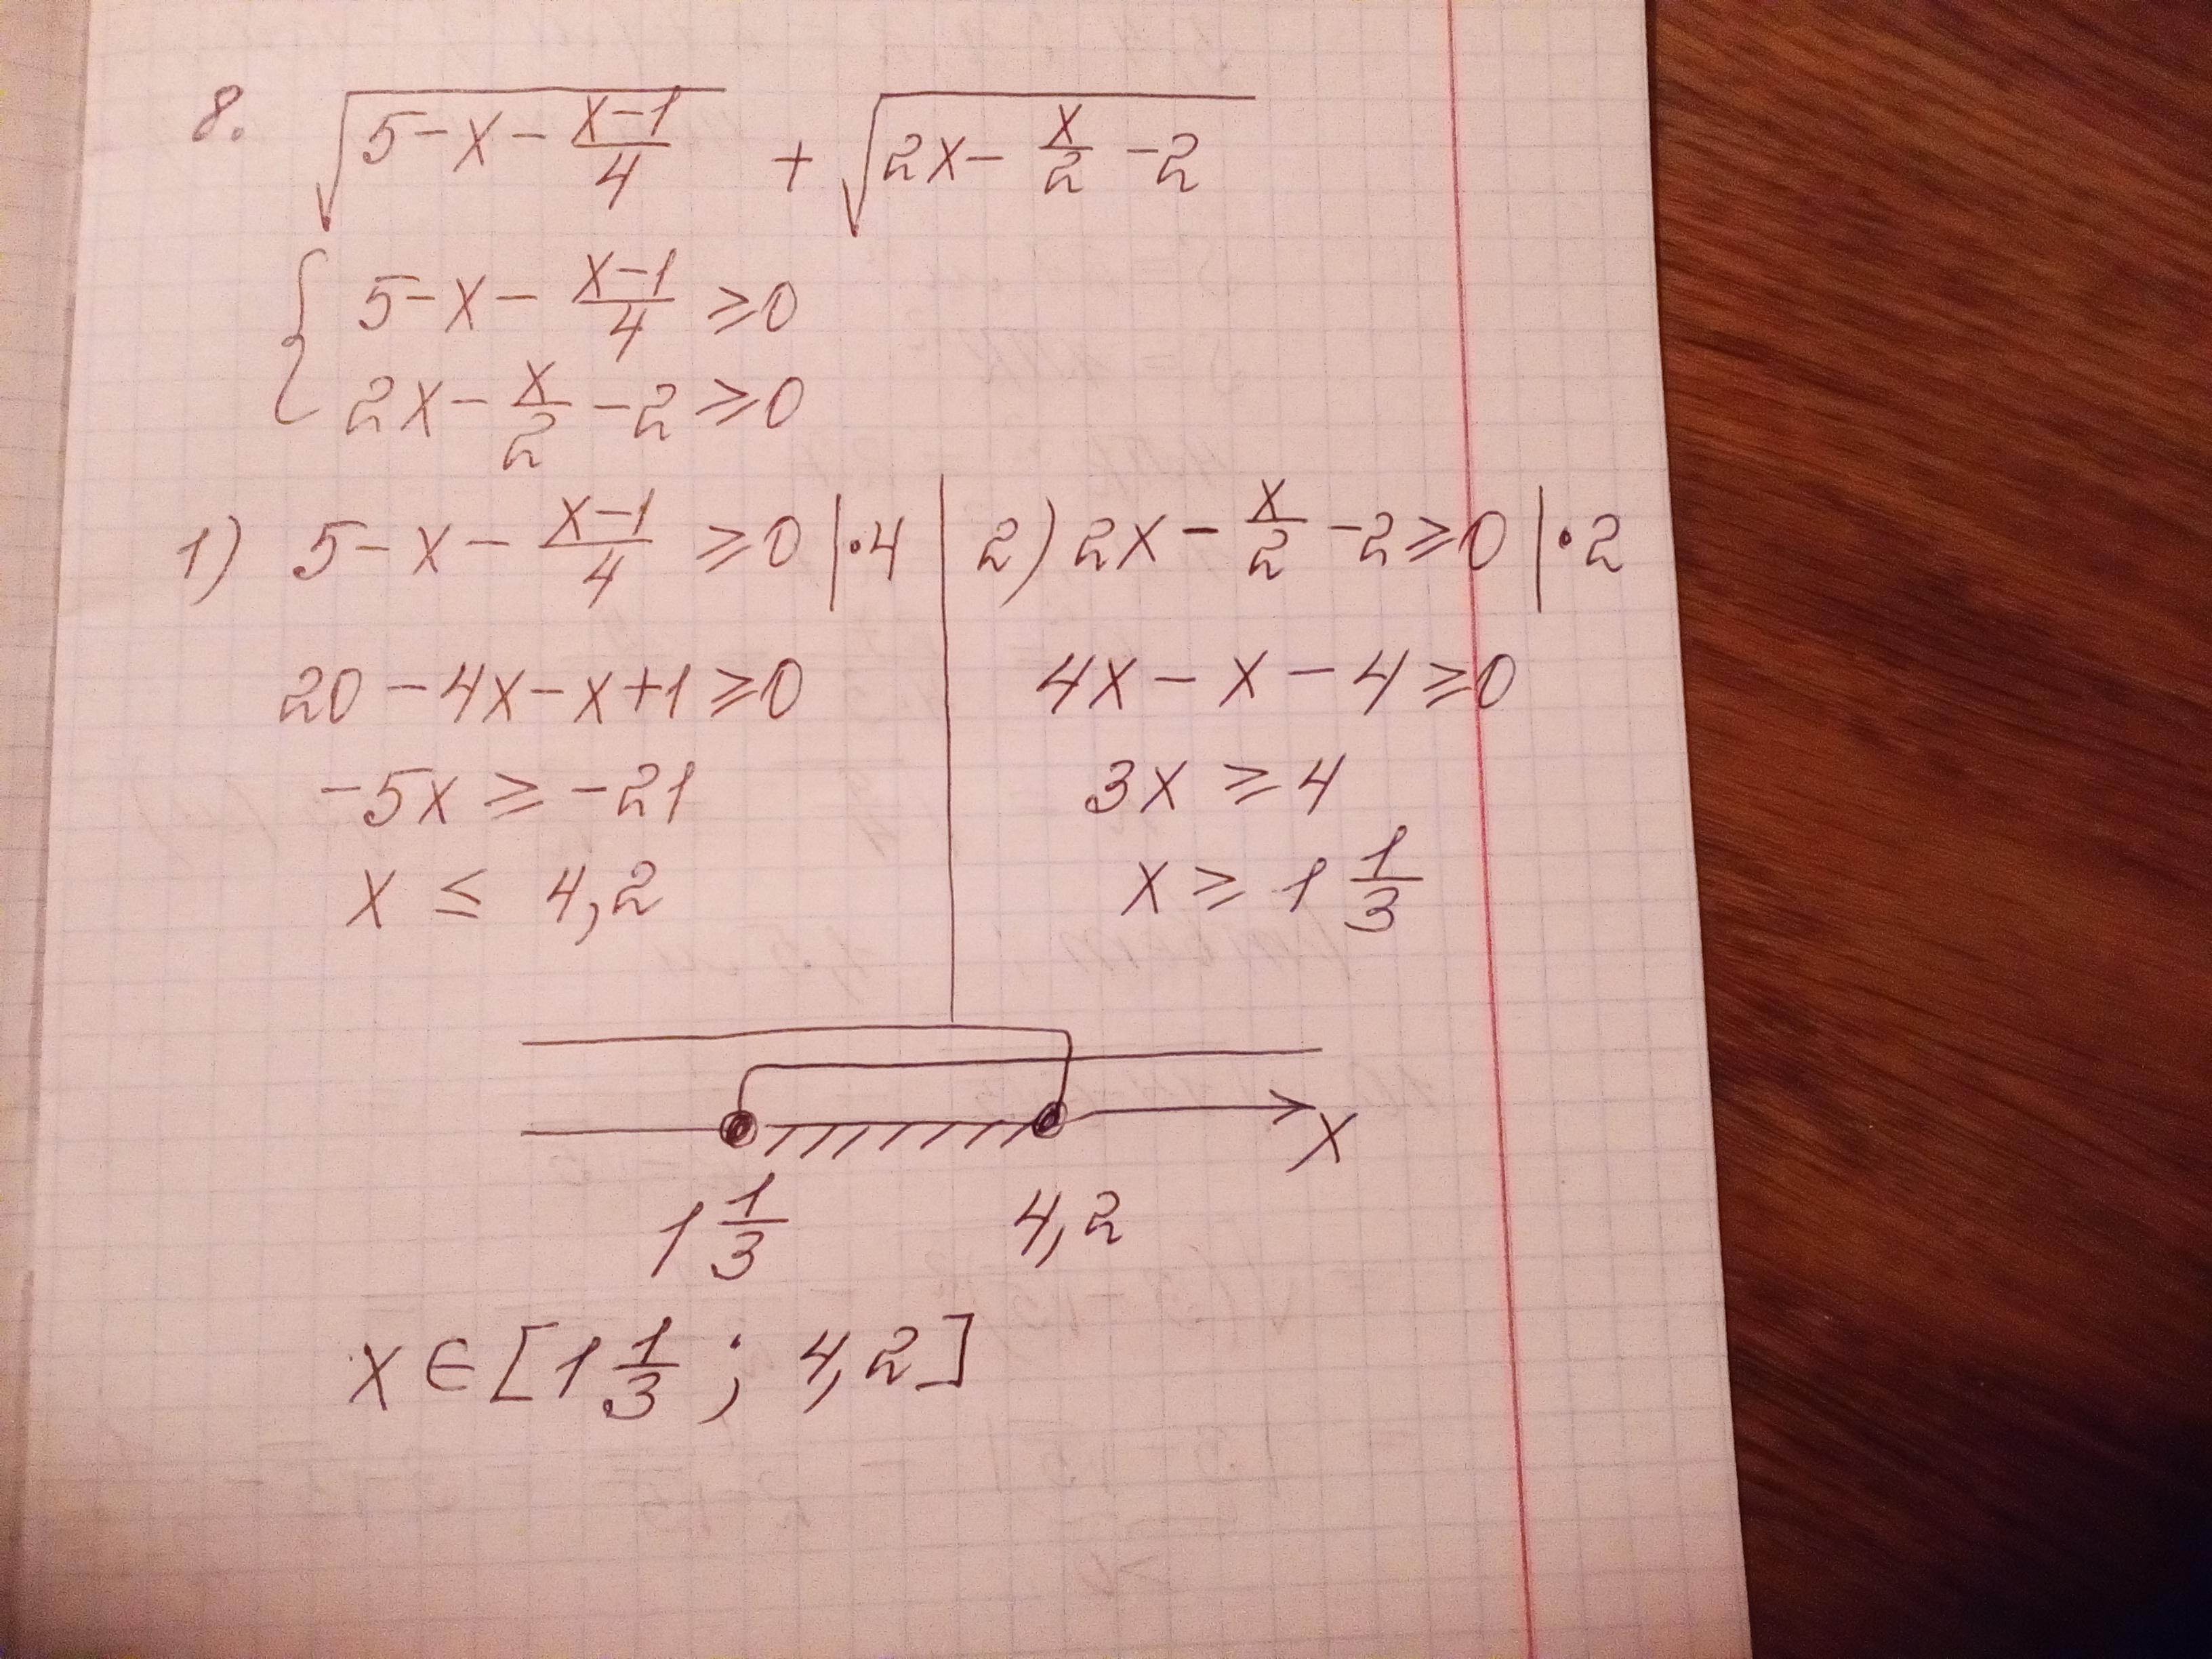 8. √(5-x-(x-1)/4) + √(2x-x/2-2)
{ 5-x-(x-1)/4 ≥0
2x-x/2-2 ≥0
1) 5-x-(x-1)/4 ≥0 |·4
20-4x-x+1≥0
-5x ≥ -21
x ≤ 4,2
2) 2x-x/2-2≥0 |·2
4x-x-4≥0
3x ≥4
x ≥ 1 1/3
x
1 1/3 4,2
x∈[1 1/3; 4,2]